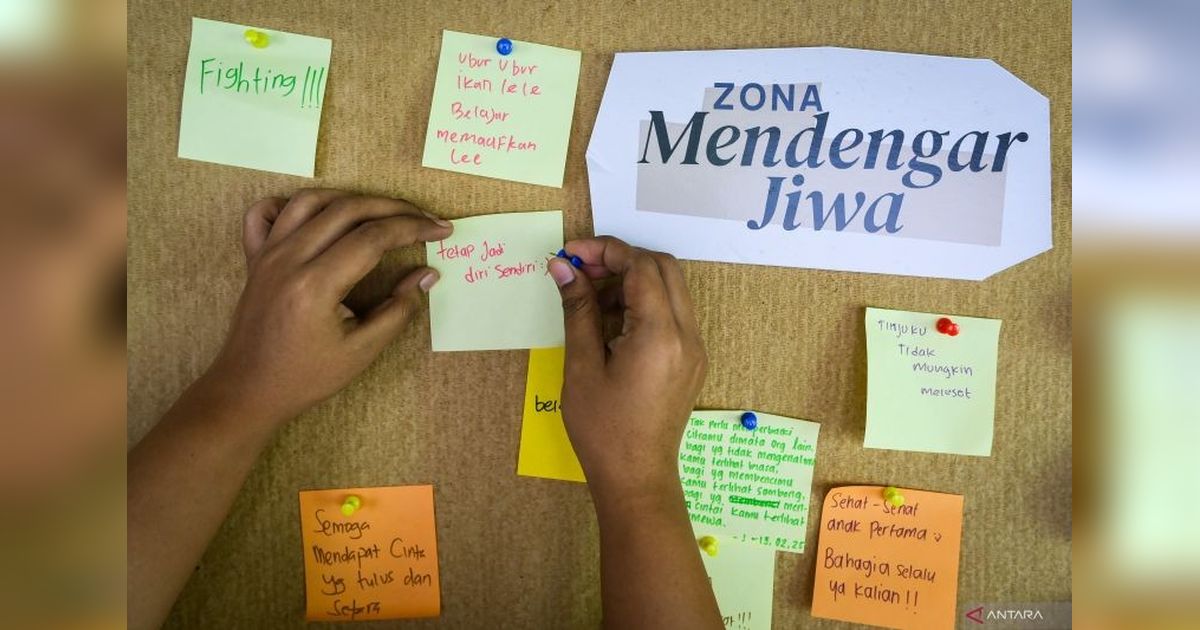 Fighting!!!
Ubur Ubur
ikan lele
Belajar
memaafkan
Lee
ZONA
Mendengar
Jiwa
tetap Jadi
diri Sendiri :)
Tinjuku
Tidak
Mungkin
meleset
Tak perlu memperbaiki
citramu dimata org lain,
bagi yg tidak mengenalmu
kamu terlihat biasa,
bagi yg membencimu
kamu terlihat sombong,
bagi yg men-
cintai kamu terlihat
- 13.02.25
Semoga
Mendapat Cinta
yg tulus dan
Setara
Sehat-Sehat
anak Pertama :)
Bahagia selalu
ya kalian!!
ANTARA